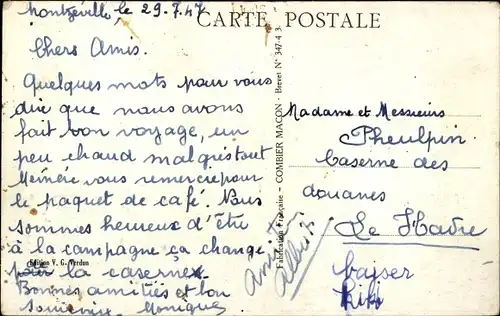 Montzéville, le 29.7.47
CARTE POSTALE
Chers Amis.
Quelques mots pour vous
dire que nous avons
fait bon voyage, un
peu chaud malgrés tout
Mémère vous remercie pour
le paquet de café. Nous
sommes heureux d'être
à la campagne ça change
pour la caserne
Bonnes amitiés et bon
Souvenir. Monique
Edition V. G. Verdun
Fabrication Française. — COMBIER MACON - Brevet N° 347-4 3
Madame et Messieurs
Pheulpin
Caserne des
douanes
Le Havre